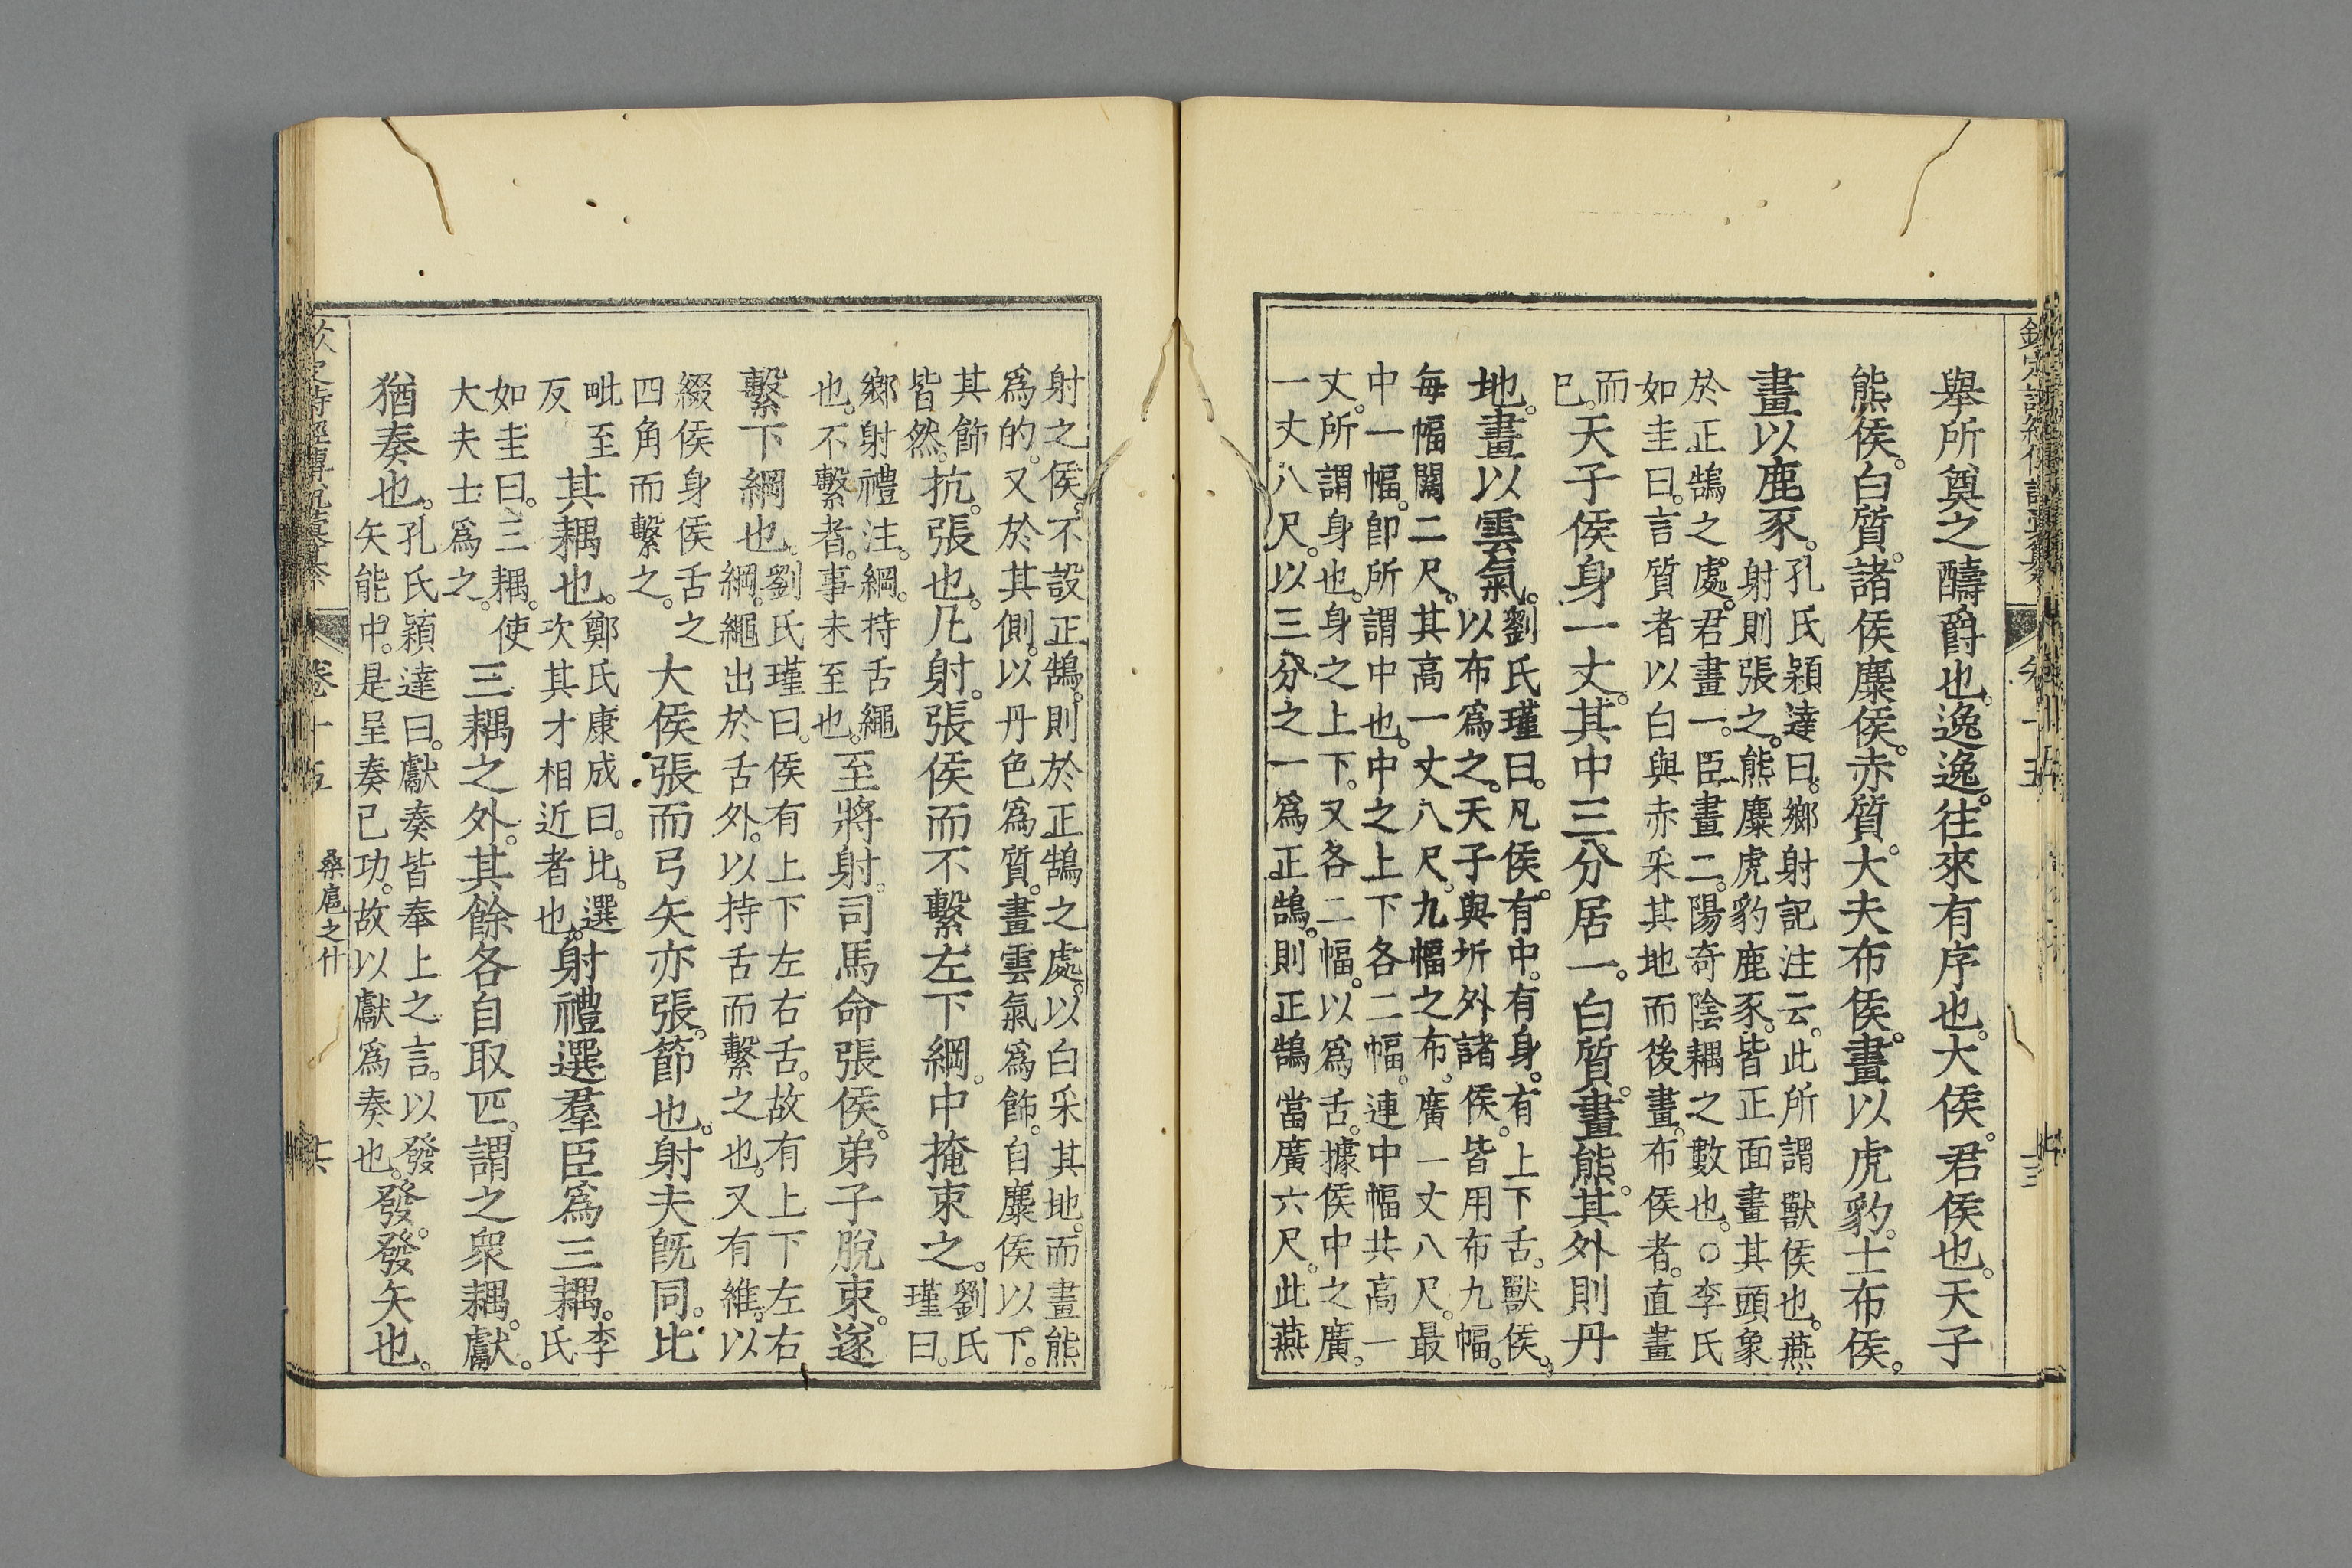 舉所奠之醻爵也。逸逸。往來有序也。大侯。君侯也。天子
熊侯。白質。諸侯麋侯。赤質。大夫布侯。畫以虎豹。士布侯。
畫以鹿豕。
孔氏穎達曰。鄉射記注云。此所謂獸侯也。燕
射則張之。熊麋虎豹鹿豕。皆正面畫其頭象
於正鵠之處。君畫一。臣畫二。陽奇陰耦之數也。○李氏
如圭曰。言質者以白與赤采其地而後畫。布侯者。直畫
而
已。
天子侯身一丈。其中三分居一。白質。畫熊。其外則丹
地。畫以雲氣。
劉氏瑾曰。凡侯。有中。有身。有上下舌。獸侯。
以布爲之。天子與圻外諸侯。皆用布九幅。
每幅闊二尺。其高一丈八尺。九幅之布。廣一丈八尺。最
中一幅。卽所謂中也。中之上下各二幅。連中幅共高一
丈。所謂身也。身之上下。又各二幅。以爲舌。據侯中之廣。
一丈八尺。以三分之一爲正鵠。則正鵠當廣六尺。此燕
射之侯。不設正鵠。則於正鵠之處。以白采其地。而畫熊
爲的。又於其側。以丹色爲質。畫雲氣爲飾。自麋侯以下。
其飾
皆然。
抗。張也。凡射。張侯而不繫左下綱。中掩束之。
劉氏
瑾曰。
鄉射禮注。綱。持舌繩
也。不繫者。事未至也。
至將射。司馬命張侯。弟子脫束。遂
繫下綱也。
劉氏瑾曰。侯有上下左右舌。故有上下左右
綱。繩出於舌外。以持舌而繫之也。又有維。以
綴侯身侯舌之
四角而繫之。
大侯張而弓矢亦張。節也。射夫旣同。比
毗至
反
其耦也。
鄭氏康成曰。比。選
次其才相近者也。
射禮選羣臣爲三耦。
李
氏
如圭曰。三耦。使
大夫士爲之。
三耦之外。其餘各自取匹。謂之衆耦。獻。
猶奏也。
孔氏穎達曰。獻奏皆奉上之言。以發
矢能中。是呈奏已功。故以獻爲奏也。
發。發矢也。
卷十五
桑扈之什